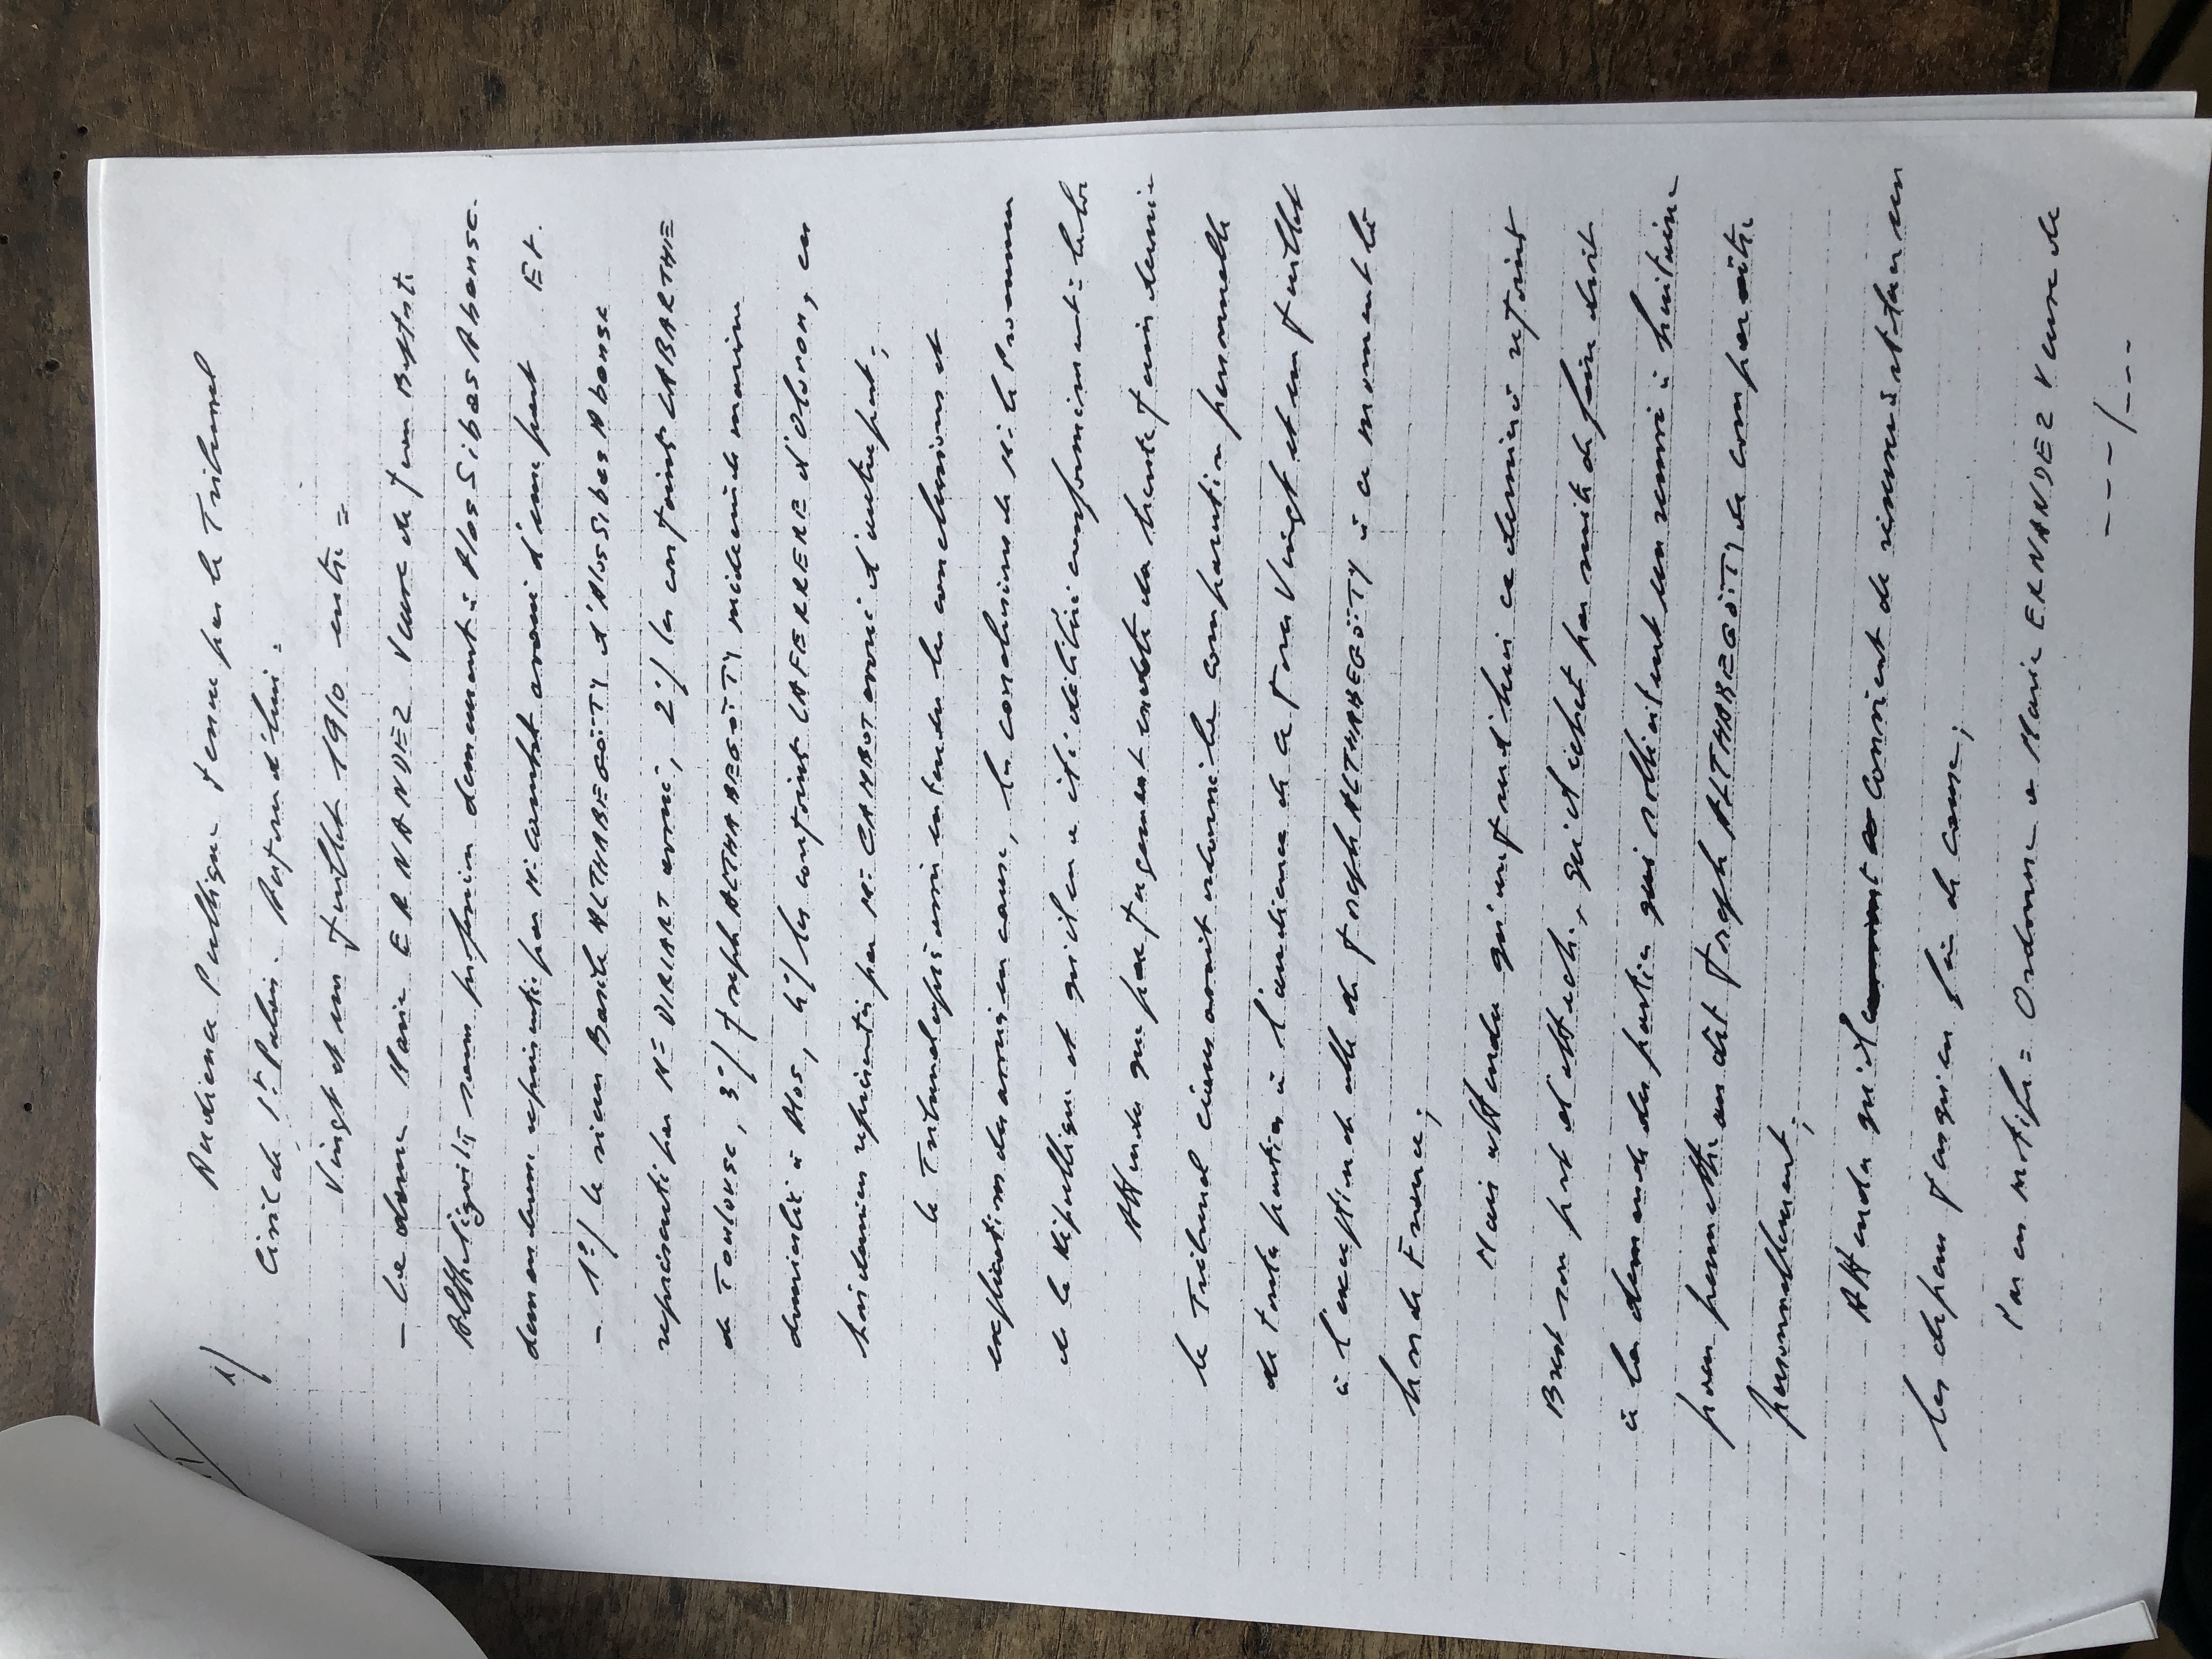 1/
Audience Publique tenue par le Tribunal
Civil de 1er Palais. Aujourd'hui =
Vingt et un Juillet 1910 entre =
- La dame Marie ERNANDEZ Veuve de Jean Baptiste
Althabégoïty sans profession demeurant à Alos Sibas Abense.
demanderesse représentée par Me Comtat avoué d'une part ET.
- 1°/ le sieur Basile ALTHABEGOÏTY d'Alos Sibas Abense
représenté par Me DIRIART avoué, 2°/ les conjoints LABARTHE
de TOULOUSE, 3°/ Joseph ALTHABEGOÏTY soldat de marine
domicilié à Alos, 4°/ les conjoints LAFERRERE d'Oloron, ces
derniers représentés par Me CAMBOT avoué d'autre part;
Le Tribunal après avoir entendu les conclusions et
explications des avoués en cause, les conclusions de Mr le Procureur
de la République et qu'il en a été délibéré conformément à la loi
Attendu que par jugement en date du trente juin dernier
le Tribunal céans avait ordonné la comparution personnelle
de toutes parties à l'audience de ce jour Vingt et un Juillet
à l'exception de celle de Joseph ALTHABEGOÏTY à ce moment là
hors de France;
Mais attendu qu'aujourd'hui ce dernier a rejoint
Brest son port d'attache, qu'il échet par suite de faire droit
à la demande des parties qui sollicitent un renvoi à huitaine
pour permettre au dit Joseph ALTHABEGOÏTY de comparaître
personnellement;
Attendu qu'il convient de réserver à statuer sur
les dépens jusqu'en fin de cause;
Par ces motifs = Ordonne à Marie ERNANDEZ Veuve de
----/---